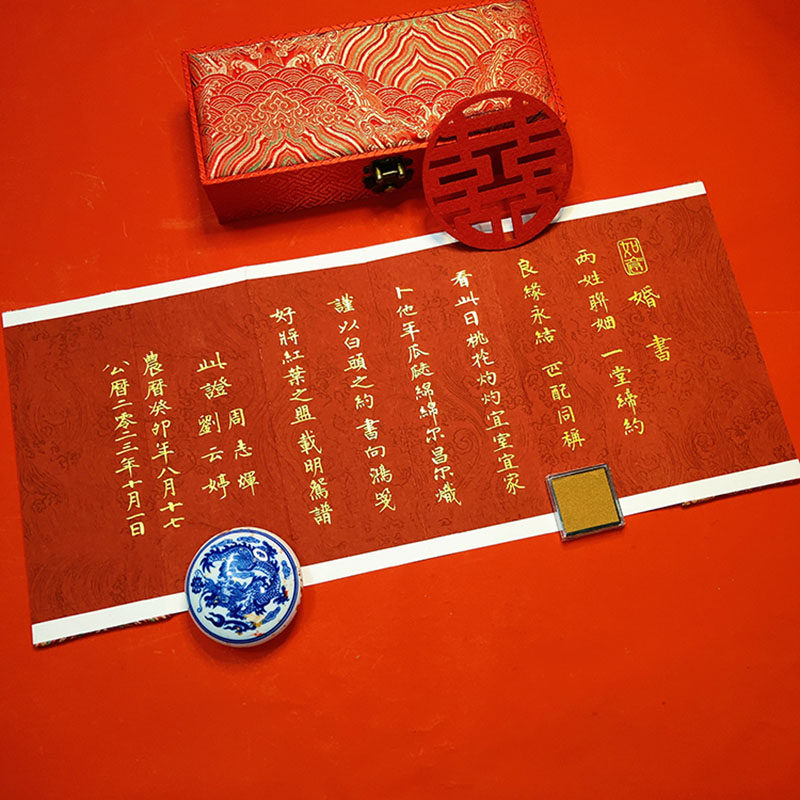 囍
如意
婚書
两姓聯姻 一堂締約
良緣永結 匹配同稱
看此日桃花灼灼宜室宜家
卜他年瓜瓞綿綿尔昌尔熾
謹以白頭之約書向鴻箋
好將紅葉之盟載明鴛譜
此證
周志煇
劉云婷
農曆癸卯年八月十七
公曆二零二三年十月一日